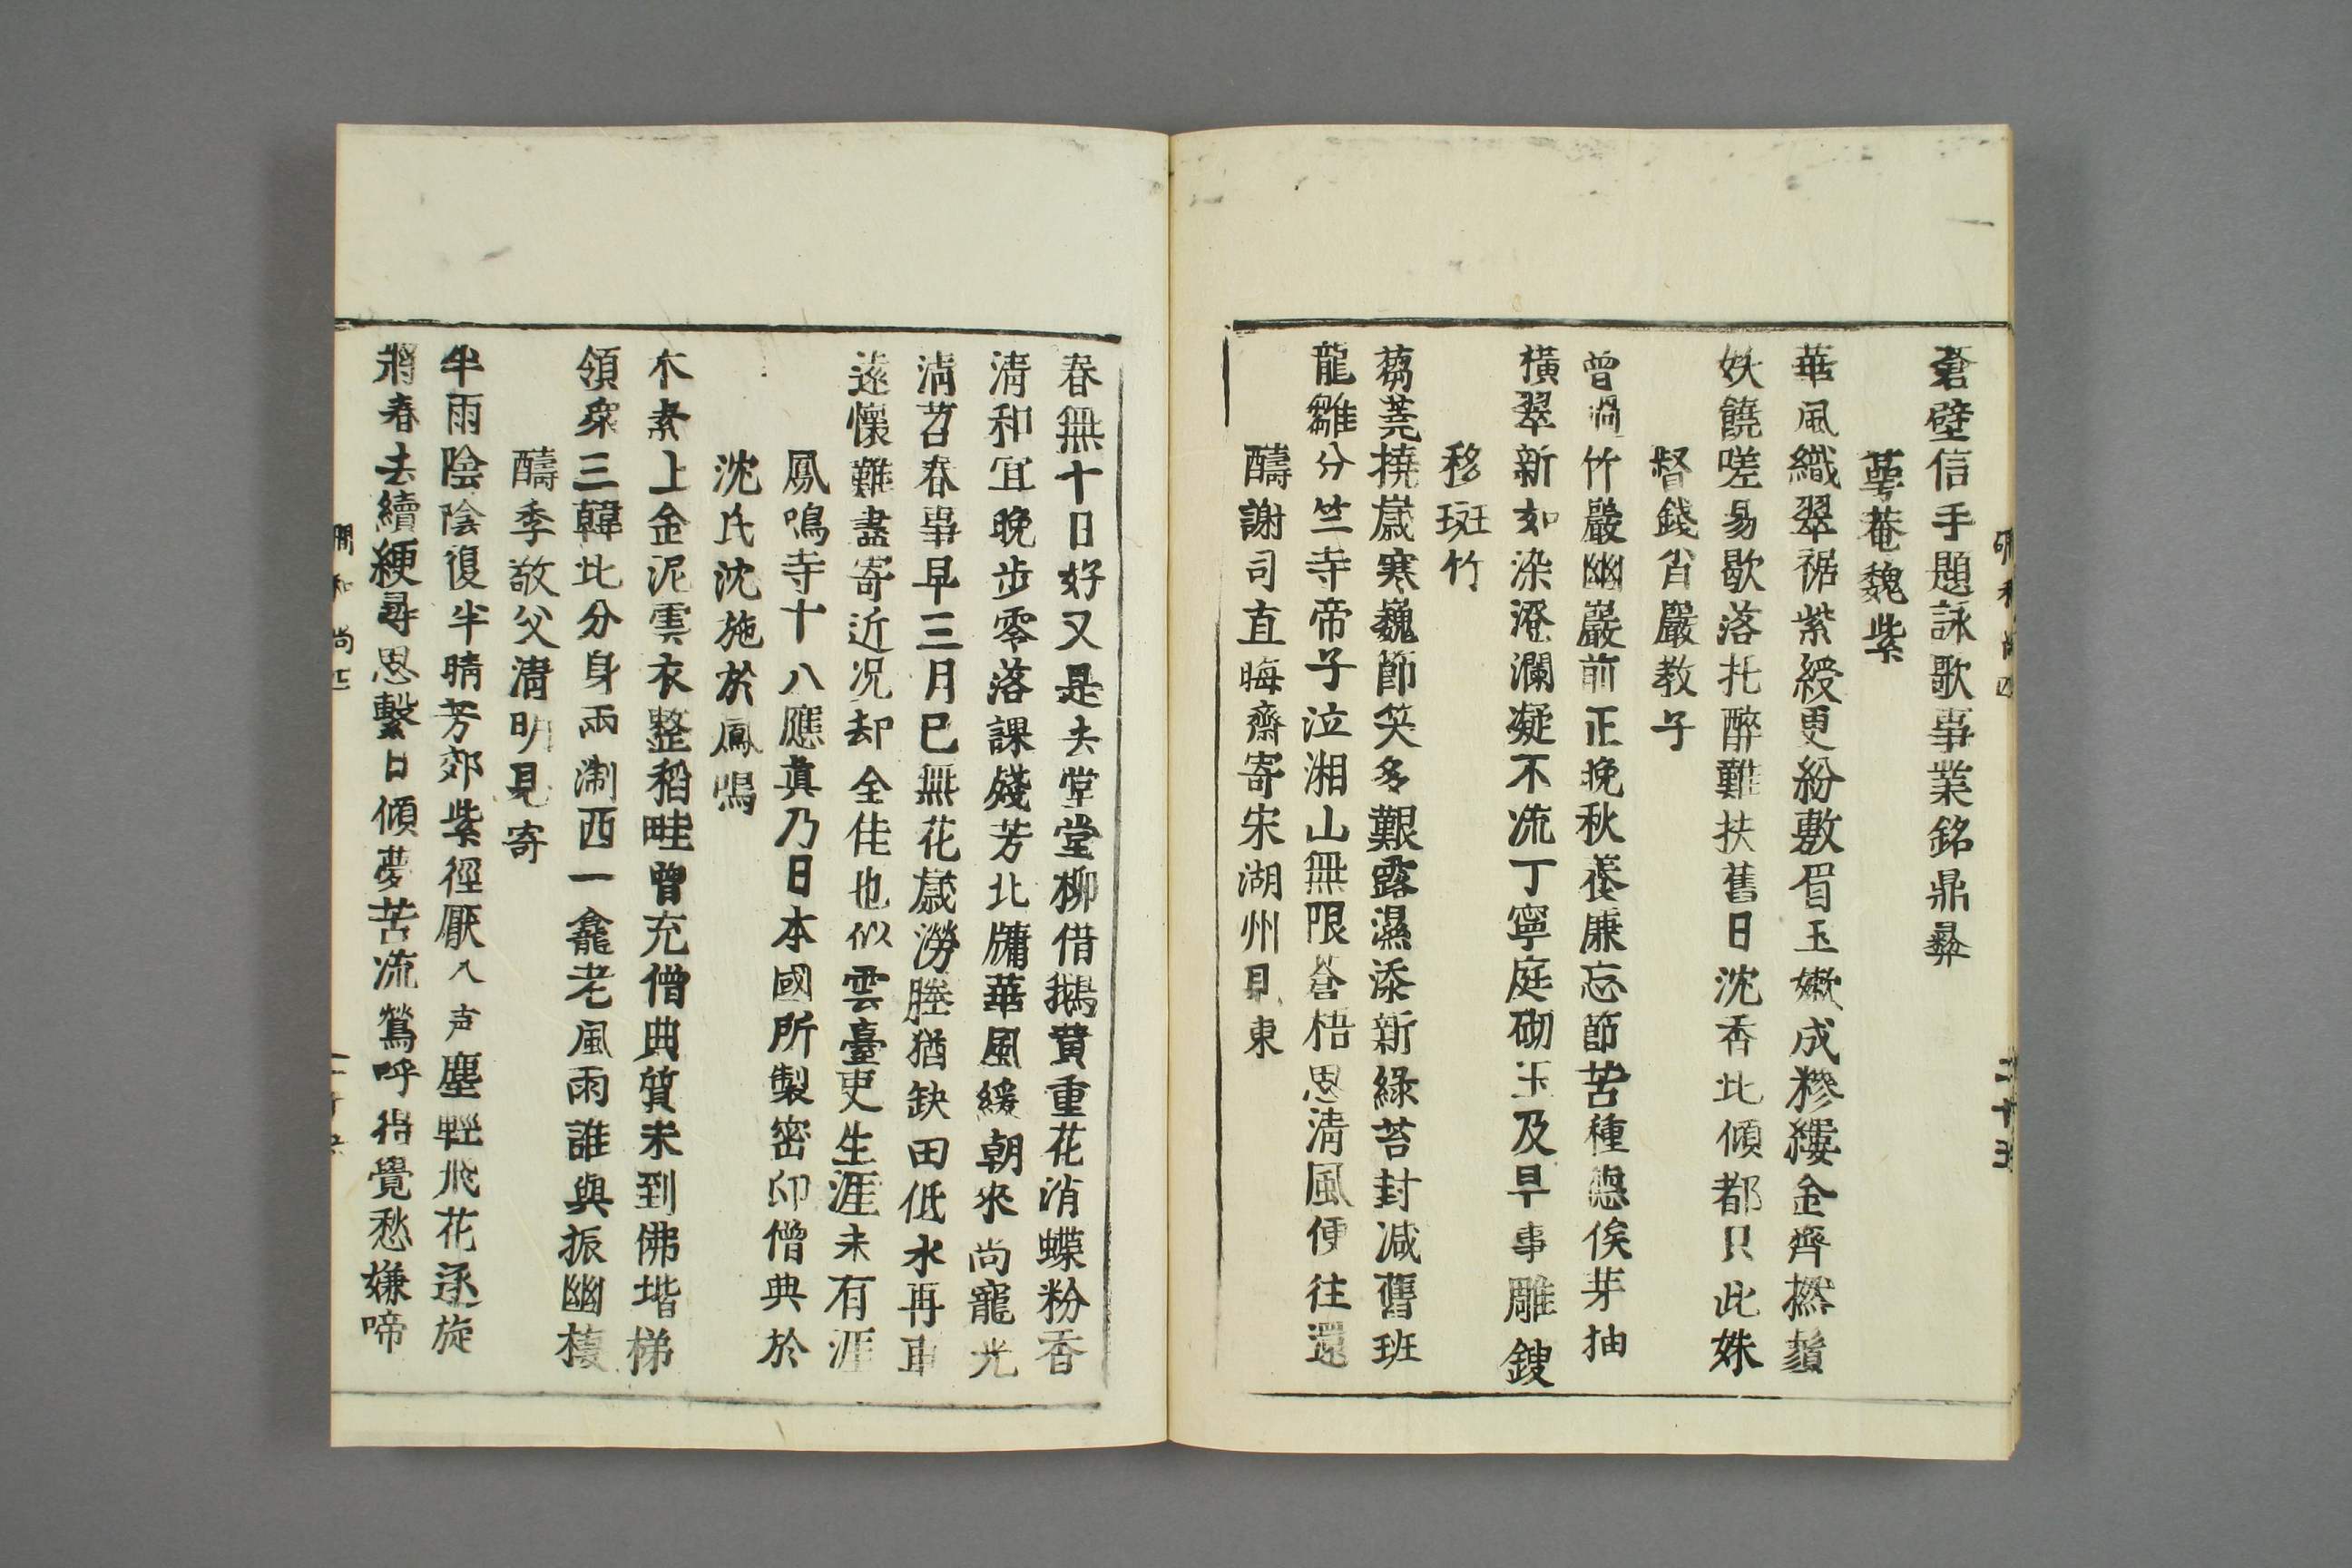 蒼壁信手題詠歌事業銘鼎彝
萼菴魏紫
華風織翠裾紫綬更紛敷眉玉嫩成糝縷金齊撚鬚
妖饒嗟易歇落托醉難扶舊日沈香北傾都只此姝
督錢省嚴教子
曾過竹嚴幽巖前正晚秋養廉忘節苦種德俟芽抽
橫翠新如染澄瀾凝不流丁寧庭砌玉及早事雕鎪
移斑竹
蒭蕘撓歲寒巍節笑多艱露濕添新綠苔封减舊班
龍雛分竺寺帝子泣湘山無限蒼梧思淸風便往還
醻謝司直晦齋寄宋湖州見東
春無十日好又是去堂堂柳借鵝黃重花消蝶粉香
淸和宜晚步零落課殘芳北牖華風緩朝來尚寵光
淸苕春事早三月已無花歲澇塍猶缺田低水再車
遠懷難盡寄近况却全佳也似雲臺吏生涯未有涯
鳳鳴寺十八應眞乃日本國所製密印僧典於
沈氏沈施於鳳鳴
木素上金泥雲衣整稻畦曾充僧典質未到佛堦梯
領衆三韓比分身兩淛西一龕老風雨誰與振幽棲
醻季敬父淸明見寄
半雨陰陰復半晴芳郊紫徑厭人声塵輕飛花逐旋
將春去續綆尋思繫日傾夢苦流鶯呼得覺愁嫌啼